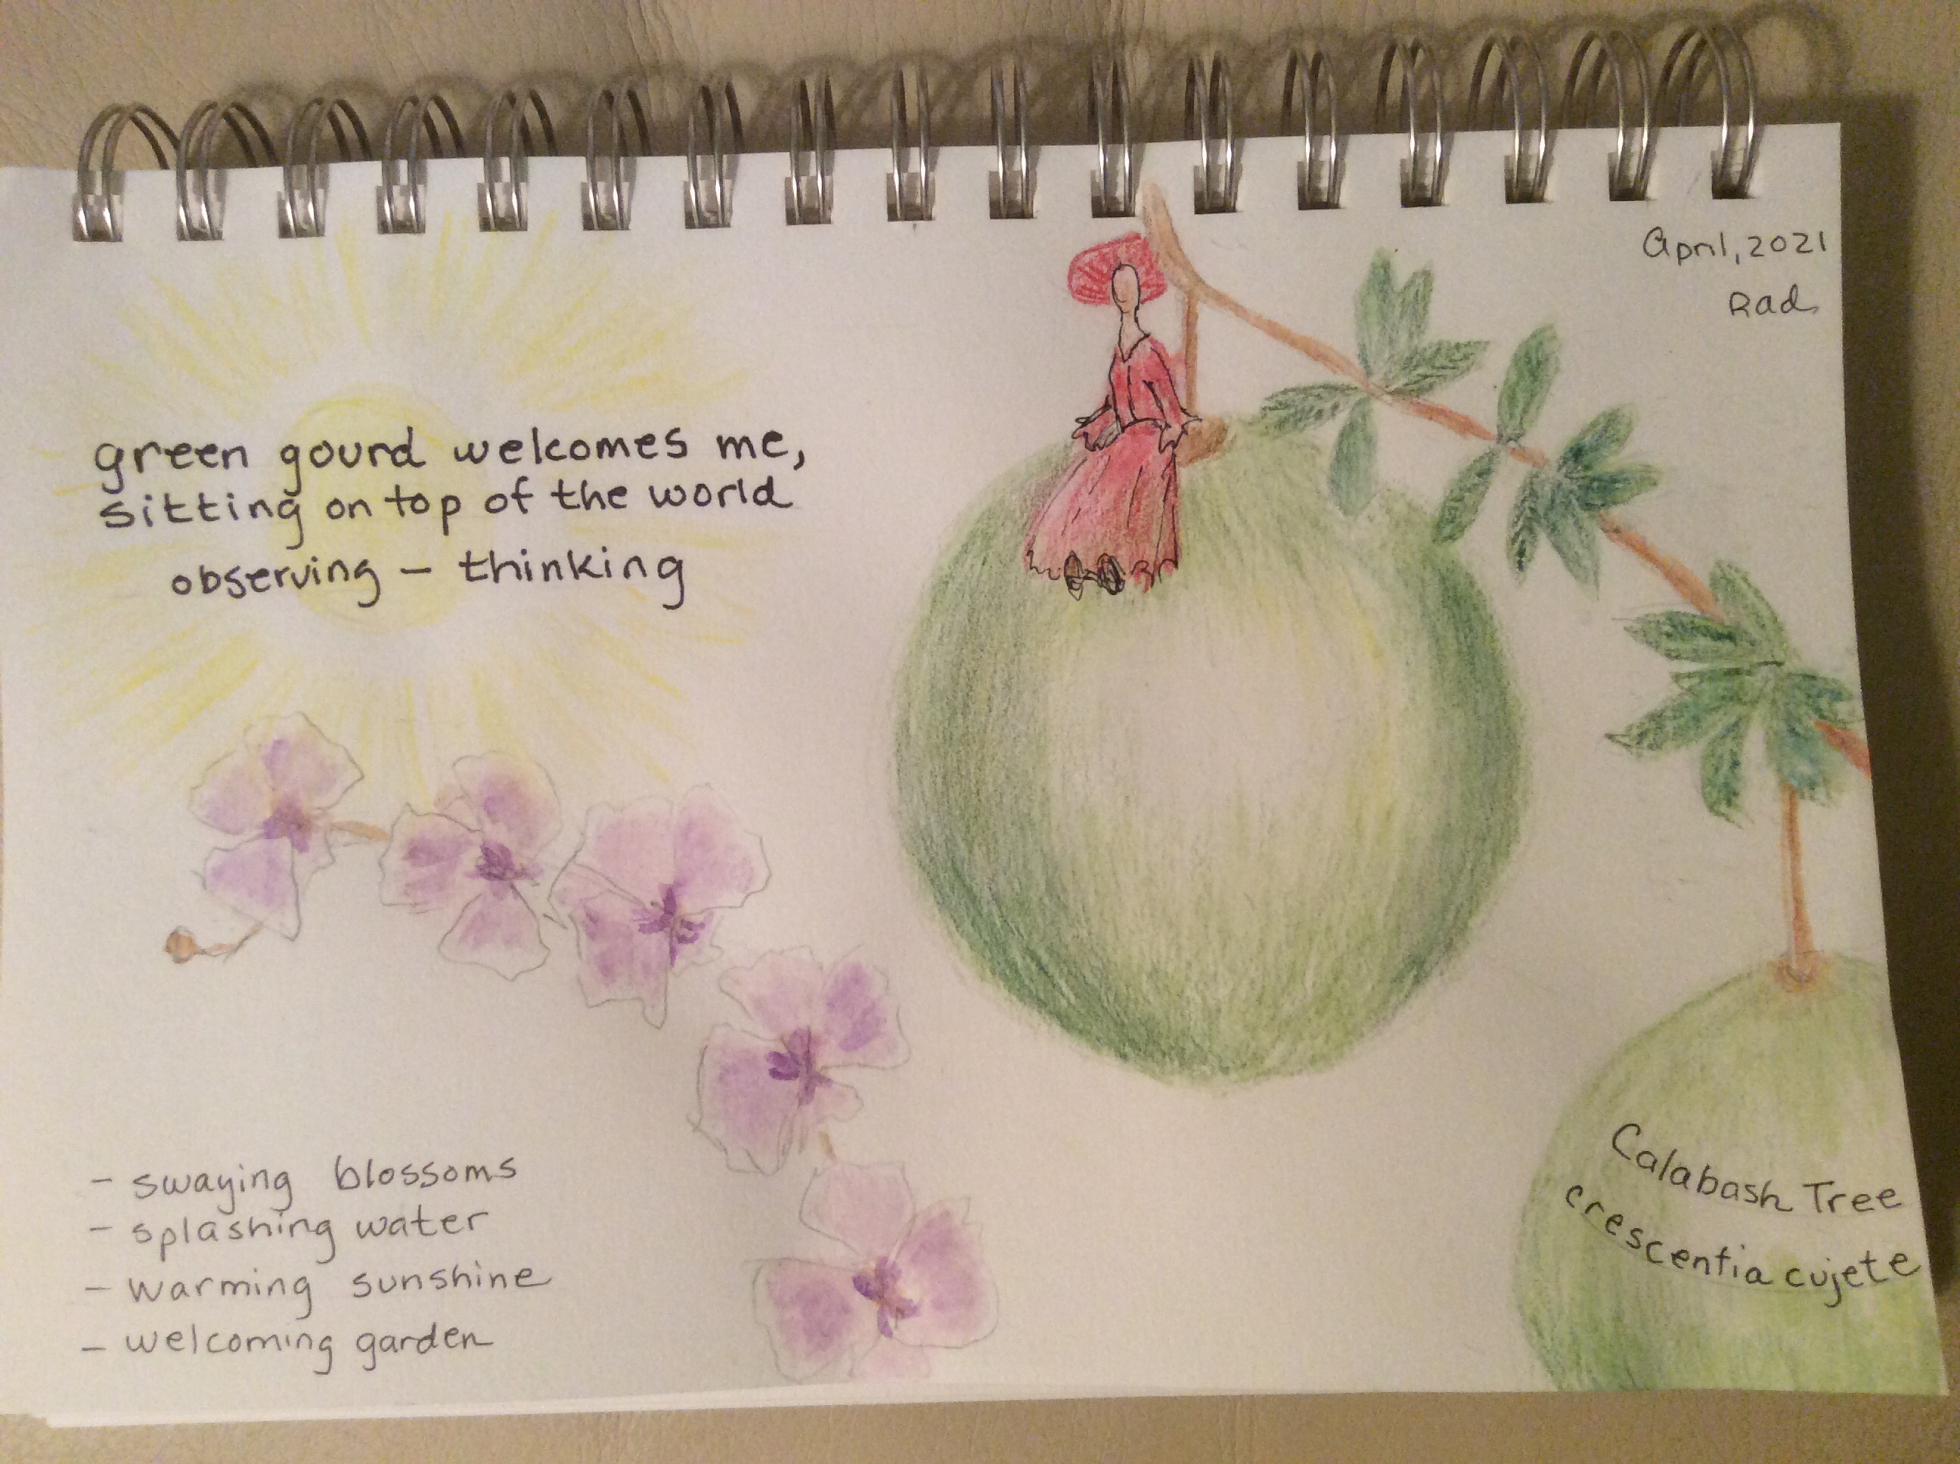 April, 2021
Rad
green gourd welcomes me,
sitting on top of the world
observing – thinking
- swaying blossoms
- splashing water
- warming sunshine
- welcoming garden
Calabash Tree
crescentia cujete